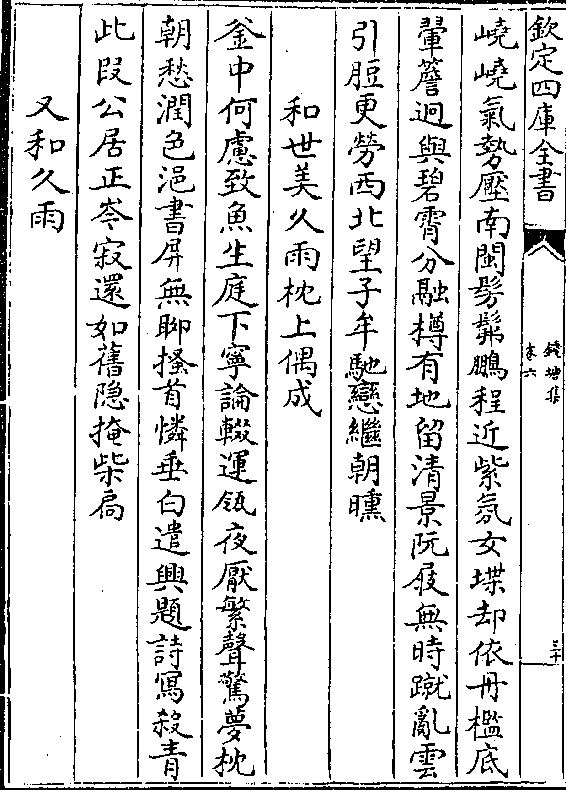 欽定四庫全書
錢塘集
卷六
三十
嶢嶢氣勢壓南閩髣髴鵬程近紫氛女堞却依丹檻底
翬簷迥與碧霄分融樽有地留清景阮屐無時蹴亂雲
引脰更勞西北望子牟馳戀繼朝曛
和世美久雨枕上偶成
釜中何慮致魚生庭下寧論輟運瓴夜厭繁聲驚夢枕
朝愁潤色浥書屏無聊搔首憐垂白遣興題詩寫殺青
此段公居正岑寂還如舊隐掩柴扃
又和久雨